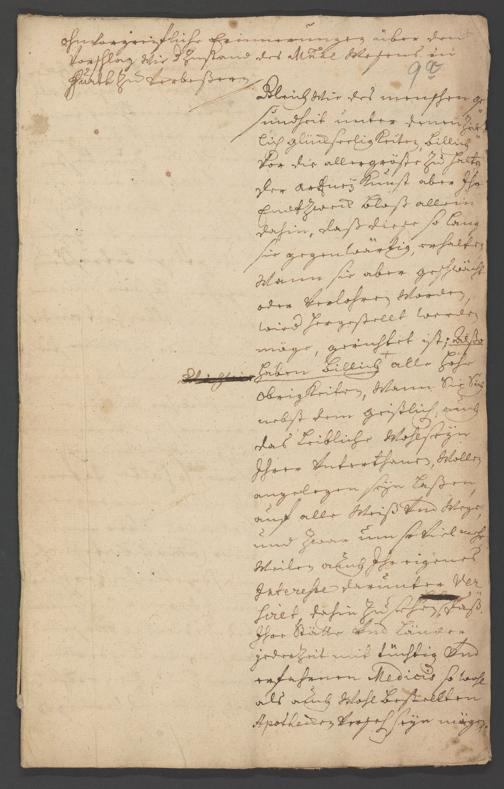 Ohnvorgreifliche Erinnerungen über den
Vorschlag wie der Zustand des Medic Wesens in
zu verbeßern
98
Gleich wie des menschen ge
sundheit unter denen Zeit
lich glückseeligkeiten, billich
vor die allergröste zu halten
der artzney Kunst aber Ihr
Endtzweck bloß allein
dahin, daß diese so lang
sie gegenwärtig, erhalten
wann sie aber geschwächt
oder verlohren worden,
wird hergestellt werden
möge, gerichtet ist;
haben billich alle Hohe
Obrigkeiten, wann Sie Sich
nebst dem geistlich, auch
das leibliche Wohlseyn
Ihrer Unterthanen, wollen
angelegen seyn laßen,
auf alle Weiß und Wege,
und zwar um so viel mehr
weilen auch Ihr eigenes
Interesse darunter ver
siret, dahin zu sehen, daß
Ihre Stätte und Länder
jederzeit mit tüchtig und
erfahrnen Medicis so wohl
als auch wohl bestellten
Apothecken versehen seyn mögen,